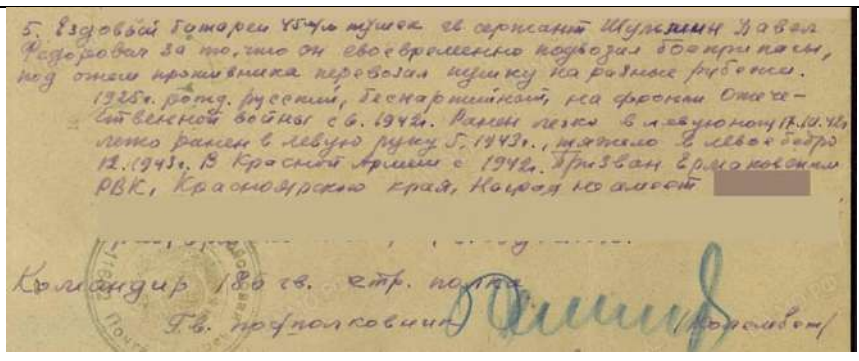 5. Ездовой батареи 45 м/м пушек гв сержант Шульмин Павел
Федорович за то, что он своевременно подвозил боеприпасы,
под огнем противника перевозил пушку на разные рубежи.
1925г. рожд. русский, беспартийный, на фронте Отече-
ственной войны с 6.1942г. Ранен легко в левую ногу 17.10.42г
легко ранен в левую руку 5.1943г., тяжело в левое бедро
12.1943г. В Красной Армии с 1942г. Призван Ермаковским
РВК, Красноярского края, Наград не имеет
Командир 186 гв. стр. полка
Гв. подполковник